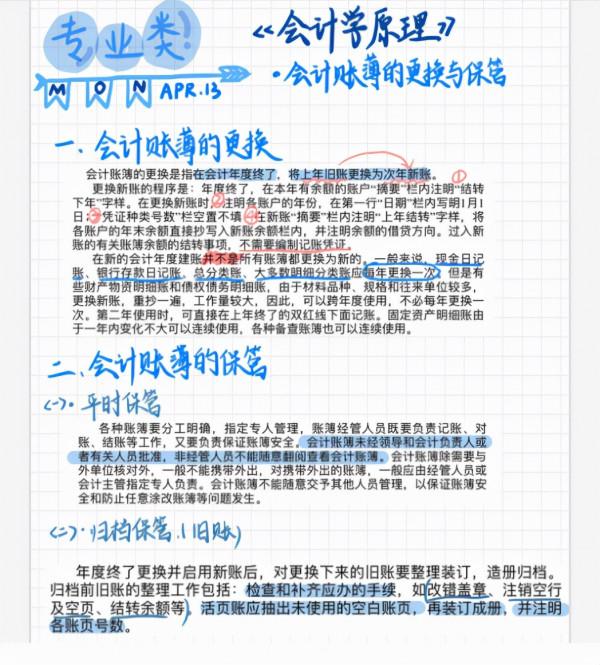 专业类!
《会计学原理》
MON APR.13
·会计账薄的更换与保管
一、会计账薄的更换
会计账薄的更换是指在会计年度终了，将上年旧账更换为次年新账。 ①
更换新账的程序是：年度终了，在本年有余额的账户“摘要”栏内注明“结转
下年”字样。在更换新账时，②注明各账户的年份，在第一行“日期”栏内写明1月1
日；③凭证种类号数”栏空置不填；④在新账“摘要”栏内注明“上年结转”字样，将
各账户的年末余额直接抄写入新账余额栏内，并注明余额的借贷方向。过入新
账的有关账簿余额的结转事项，不需要编制记账凭证。
在新的会计年度建账并不是所有账簿都更换为新的。一般来说，现金日记
账、银行存款日记账、总分类账、大多数明细分类账应每年更换一次。但是有
些财产物资明细账和债权债务明细账，由于材料品种、规格和往来单位较多，
更换新账，重抄一遍，工作量较大，因此，可以跨年度使用，不必每年更换一
次。第二年使用时，可直接在上年终了的双红线下面记账。固定资产明细账由
于一年内变化不大可以连续使用，各种备查账簿也可以连续使用。
二、会计账薄的保管
(一)·平时保管
各种账簿要分工明确，指定专人管理，账簿经管人员既要负责记账、对
账、结账等工作，又要负责保证账簿安全。会计账簿未经领导和会计负责人或
者有关人员批准，非经管人员不能随意翻阅查看会计账簿。会计账簿除需要与
外单位核对外，一般不能携带外出，对携带外出的账簿，一般应由经管人员或
会计主管指定专人负责。会计账簿不能随意交予其他人员管理，以保证账簿安
全和防止任意涂改账簿等问题发生。
(二)·归档保管.(旧账)
年度终了更换并启用新账后，对更换下来的旧账要整理装订，造册归档。
归档前旧账的整理工作包括：检查和补齐应办的手续，如改错盖章、注销空行
及空页、结转余额等，活页账应抽出未使用的空白账页，再装订成册，并注明
各账页号数。